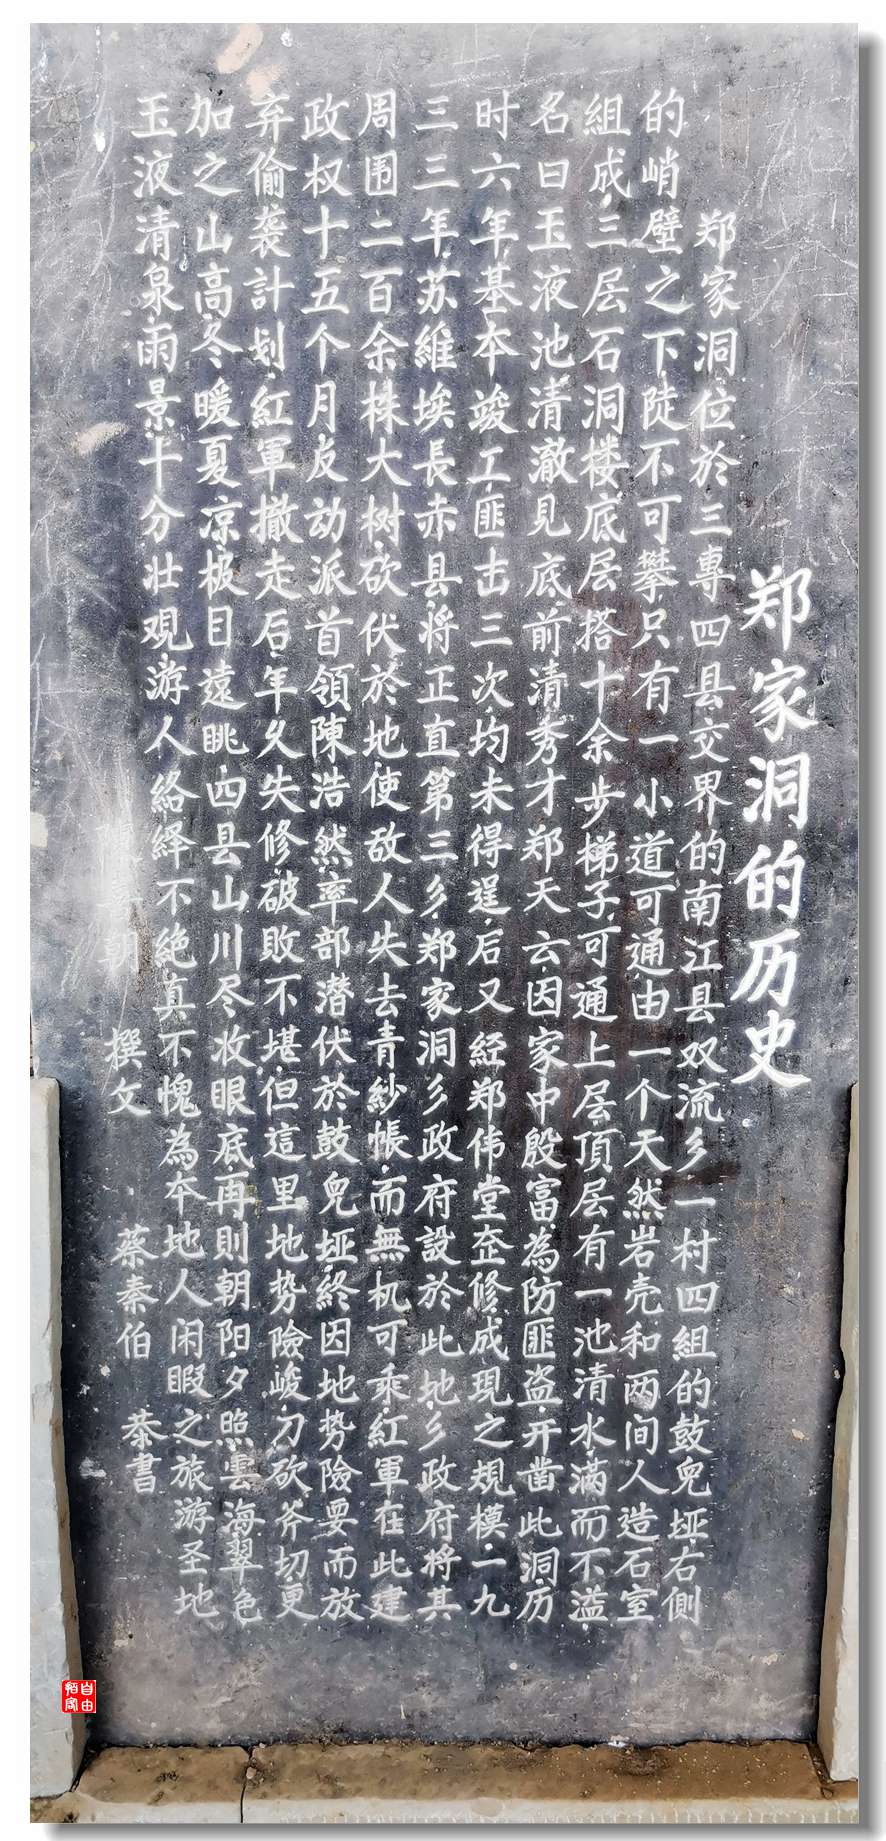 郑家洞的历史
郑家洞位於三專四县交界的南江县双流乡一村四組的鼓皃垭右側
的峭壁之下陡不可攀只有一小道可通由一个天然岩壳和两间人造石室
組成三层石洞楼底层搭十余步梯子可通上层頂层有一池清水满而不溢
名曰玉液池清澈見底前清秀才郑天云因家中殷富為防匪盗开凿此洞历
时六年基本竣工匪击三次均未得逞后又経郑伟堂垄修成現之規模一九
三三年苏維埃長赤县将正直第三乡郑家洞乡政府設於此地乡政府将其
周围二百余株大树砍伏於地使敌人失去青紗帳而無机可乘紅軍在此建
政权十五个月反动派首領陳浩然率部潜伏於鼓皃垭終因地势險要而放
弃偷袭計划紅軍撤走后年久失修破敗不堪但這里地势險峻刀砍斧切更
加之山高冬暖夏凉极目遠眺四县山川尽收眼底再則朝阳夕照雲海翠色
玉液清泉雨景十分壮观游人絡繹不絶真不愧為本地人闲暇之旅游圣地
撰文 蔡秦伯 恭書
自由